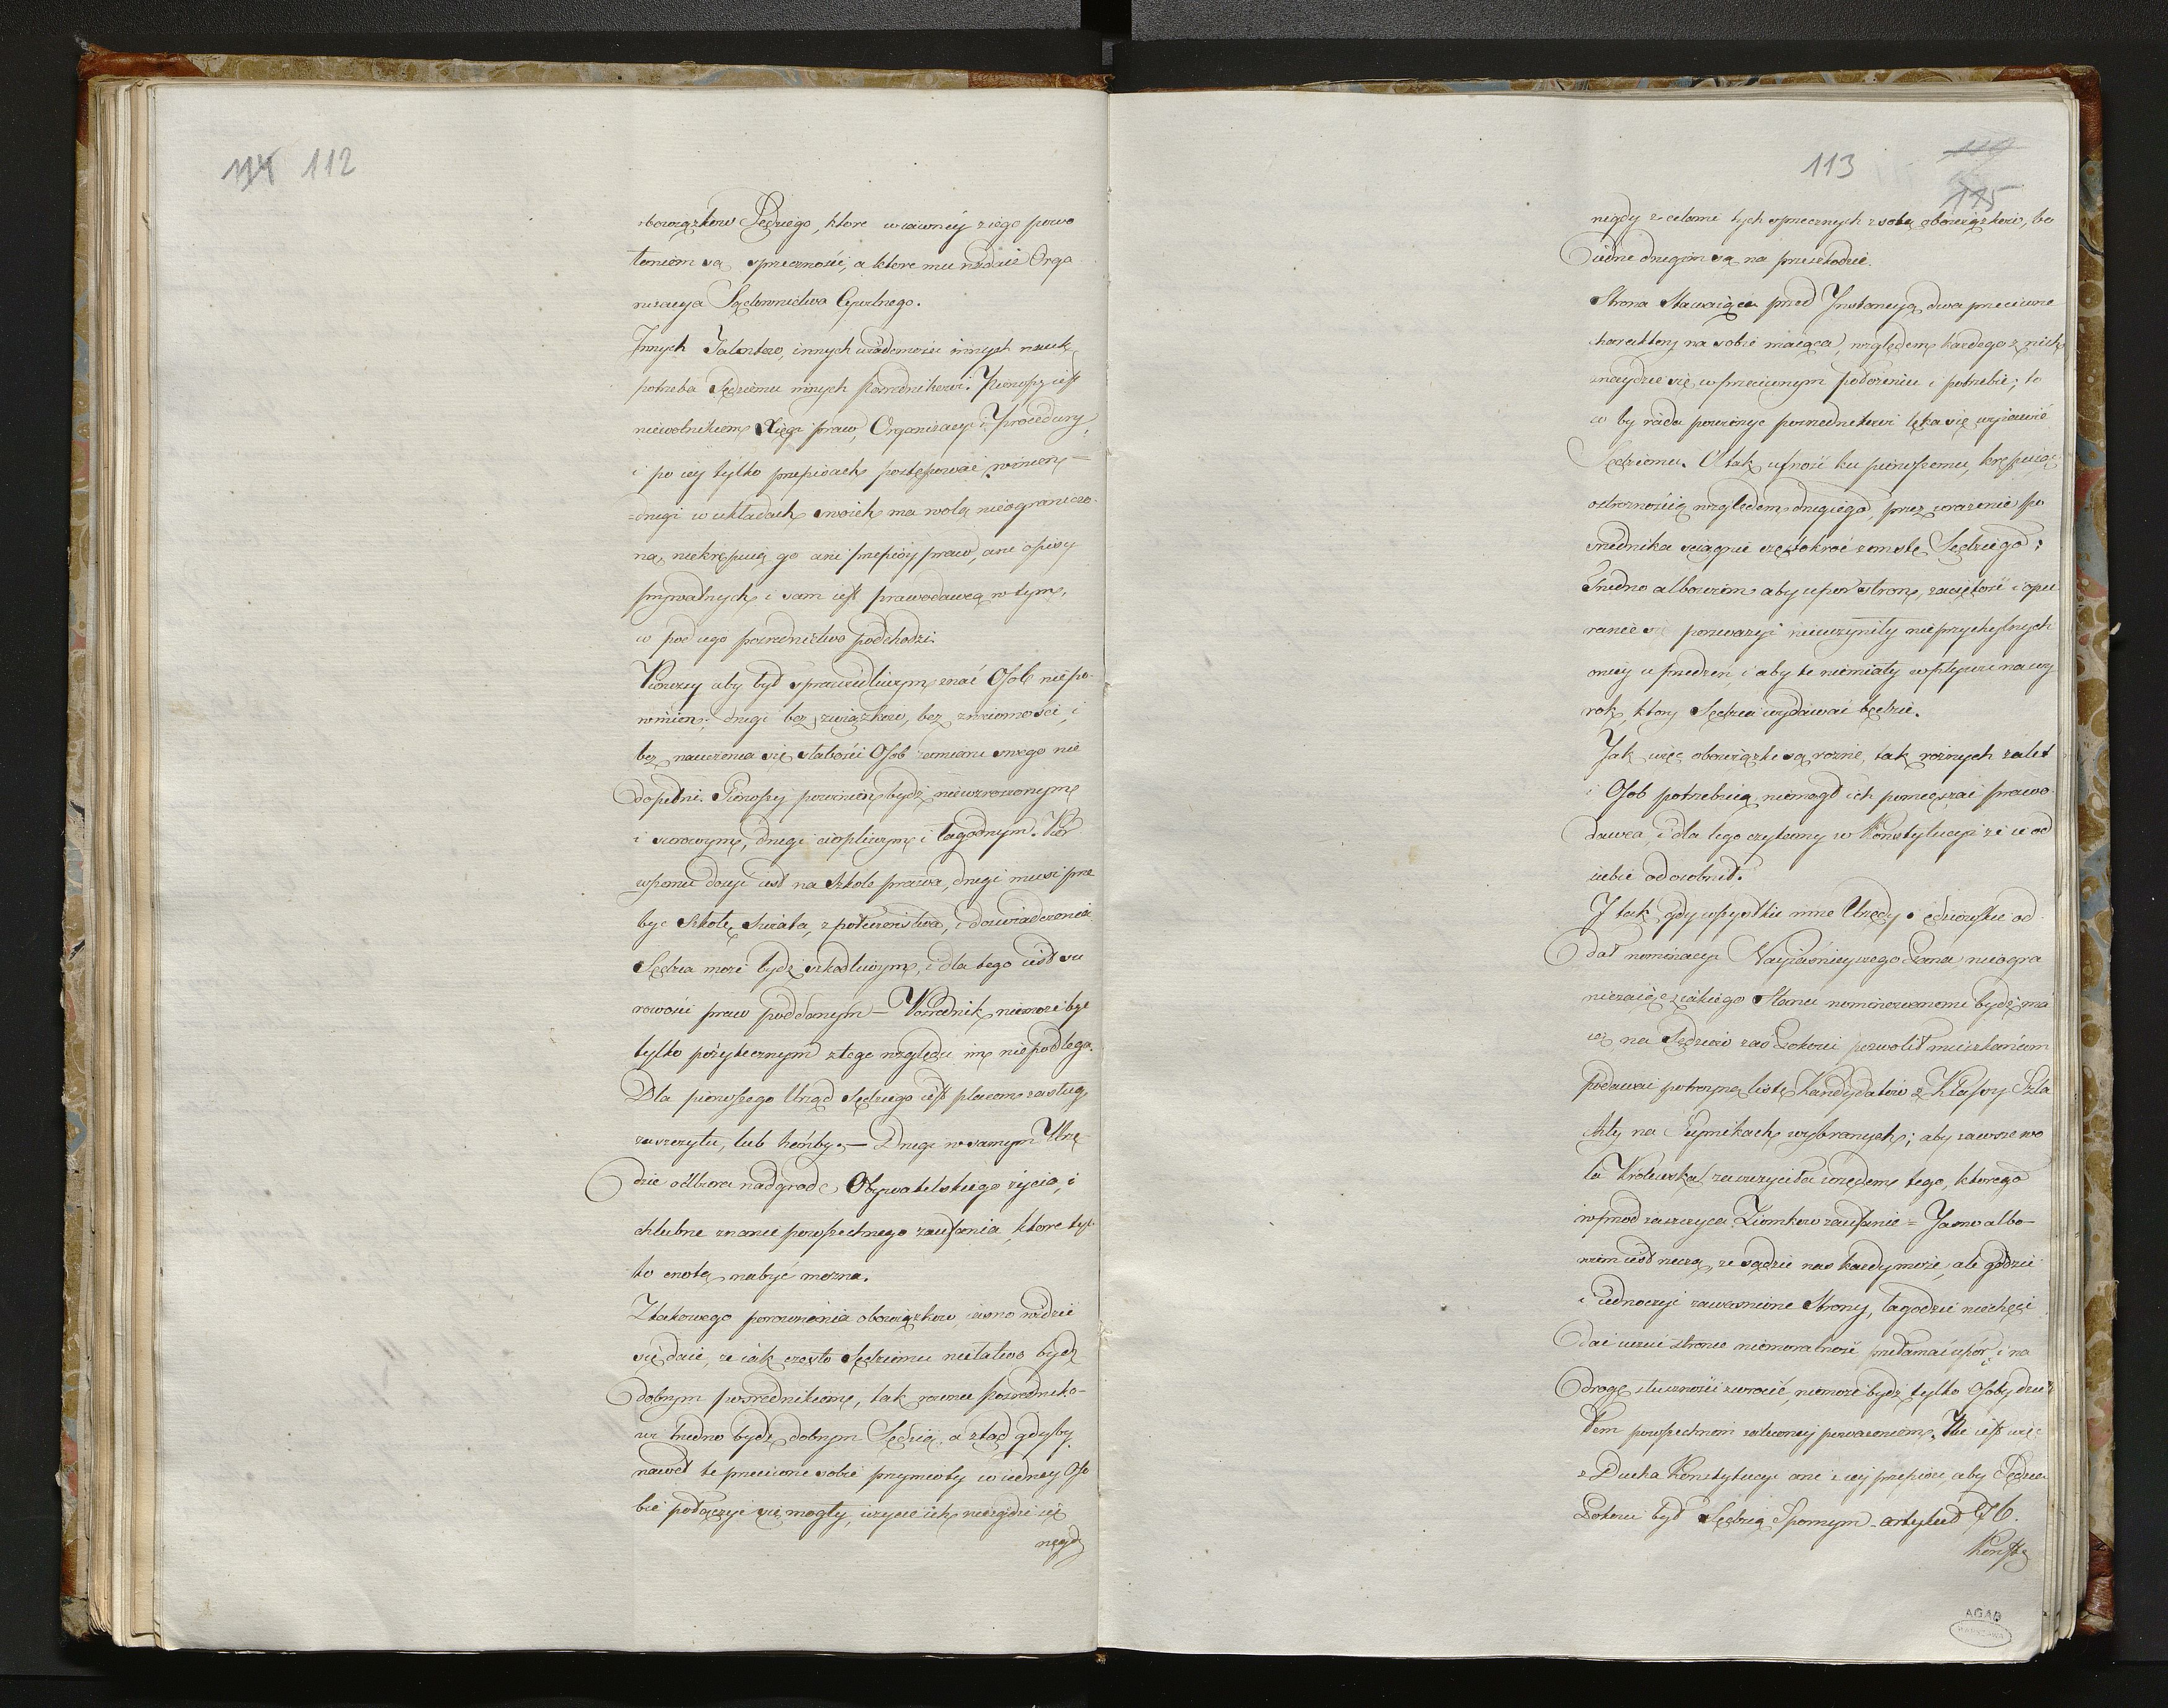 114 112
obowiązkow Sędziego, ktore w iawney z iego powo
łaniem są sprzeczności, a ktore mu nadaie Orga
nizacya Sądownictwa Cywilnego.
Innych Talentow, innych wiadomości innych nauk
potrzeba Sędziemu innych Pośrednikowi. Pierwszy iest
niewolnikiem Xięgi praw, Organizacyi i Procedury,
i po iey tylko przepisach postępować winien =
= drugi w układach swoich ma wolę nieograniczo-
ną, niekrępuią go ani przepisy praw, ani opisy
prywatnych i sam iest prawodawcą w tym,
co pod iego pośrednictwo podchodzi.
Pierwszy aby był sprawiedliwym znać Osob niepo-
winien; drugi bez związkow, bez znaiomości, i
bez nauczenia się słabości Osob zamiaru swego nie
dopełni. Pierwszy powinien bydź niewzruszonym
i surowym, drugi cierpliwym i łagodnym. Pier
wszemu dosyć iest na Szkole prawa, drugi musi prze
być Szkołę Swiata, społeczeństwa, i doswiadczenia
Sędzia może bydź szkodliwym, i dla tego iest su
rowości praw poddanym — Pośrednik niemoże być
tylko pożytecznym z tego względu im niepodlega.
Dla pierwszego Urząd Sędziego iest placem zasług
zaszczytu, lub hańby. — Drugi w samym Urzę
dzie odbiera nadgrodę Obywatelskiego życia, i
chlubne znamie powszechnego zaufania, ktore tyl
ko cnotą nabyć można.
Z takowego porownania obowiązkow, iasno widzieć
się daie, że iak często Sędziemu niełatwo bydź
dobrym pośrednikiem, tak rownie pośredniko-
wi trudno bydź dobrym Sędzią, a ztąd gdyby
nawet te przeciwne sobie przymioty w iedney Oso
bie połączyć się mogły, użycie ich niezgodzi się
nigdy
113 119
115
nigdy z celami tych sprzecznych z sobą obowiązkow, bo
iedne drugim są na przeszkodzie.
Strona Stawaiąca przed Instancyą dwa przeciwne
charaktery na sobie maiącą, względem każdego z nich
znaydzie się w przeciwnym położeniu i potrzebie; to
co by rada powierzyć pośrednikowi lęka się wyiawić
Sędziemu. A tak ufność ku pierwszemu, krępuiąc
ostrożnością względem drugiego, przez urażenie po
średnika ściągnie częstokroć zemstę Sędziego:
Trudno albowiem aby upor stron, zaciętość i opie
ranie się perswazyi nieuczyniły nieprzychylnych
onéy uprzedzeń, i aby te niemiały wpływu na wy
rok, ktory Sędzia wydawać będzie.
Jak więc obowiązki są rożne, tak rożnych zalet
i Osob potrzebuią, niemogł ich pomięszać prawo
dawca, i dla tego czytamy w Konstytucyi że ie od
siebie odosobnił.
I tak, gdy wszystkie inne Urzędy Sędziowskie od
dał nominacyi Nayiaśnieyszego Pana nieogra
niczaiąc z iakiego Stanu nominowanemi bydź ma
ią, na Sędziow zaś Pokoiu pozwolił mieszkańcom
podawać potroyną listę Kandydatow z Klassy Szla
chty na Seymikach wybranych; aby zawsze wo
la Krolewska zaszczycała urzędem tego, ktorego
wprzod zaszczyca Ziomkow zaufanie = Jasno albo-
wiem iest rzeczą, że sądzić nas każdy może, ale godzić
i iednoczyć zawaśnione Strony, łagodzić niechęci
dać uczuć stronie niemoralność przełamać upór i na
drogę słuszności zwrocić, niemoże bydź tylko Osoby dzie
łem powszechnem zaleconey poważaniem. Nie iest więc
z Ducha Konstytucyi ani z iey przepisu, aby Sędzia
Pokoiu był Sędzią Spornym. artykuł 76.
Konst:
AGAD
WARSZAWA